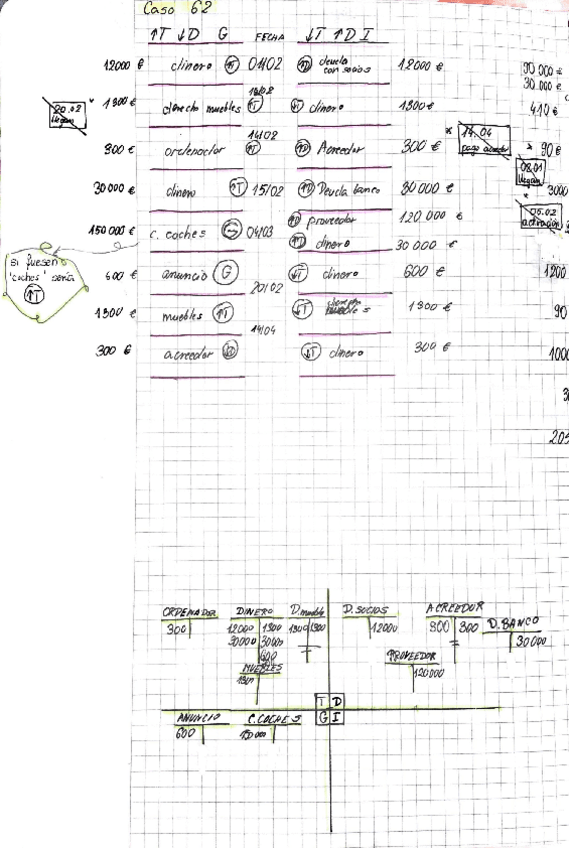 Caso 62
↑T ↓D G FECHA ↓T ↑D I
12000 € dinero ↑T 01/02 ↑D deuda con socios 12000 €
20.02 llegan * 1300 € derecho muebles ↑T ↓T dinero 1300 €
300 € ordenador 14/02 ↑T ↑D Acreedor 300 €
* 14.04 pago acreedor
30000 € dinero ↑T 15/02 ↑D Deuda banco 30000 €
150000 € c. coches 04/03 ↑D proveedor 120 000 €
dinero 30 000 €
si fuesen "coches" sería ↑T
600 € anuncio G ↓T dinero 600 €
20/02
1300 € muebles ↑T ↓T muebles 1300 €
14/04
300 € acreedor ↓D ↓T dinero 300 €
30 000 €
410 €
* 90 €
08.01 llegan
3000
*
05.02
1200
90
1000
205
ORDENADOR DINERO D. mueble D. SOCIOS ACREEDOR D. BANCO
300 12000 1300 1300 1300 12000 300 300 30000
30000 30000
600
MUEBLES PROVEEDOR
1300 120000
T D
G I
ANUNCIO C. COCHES
600